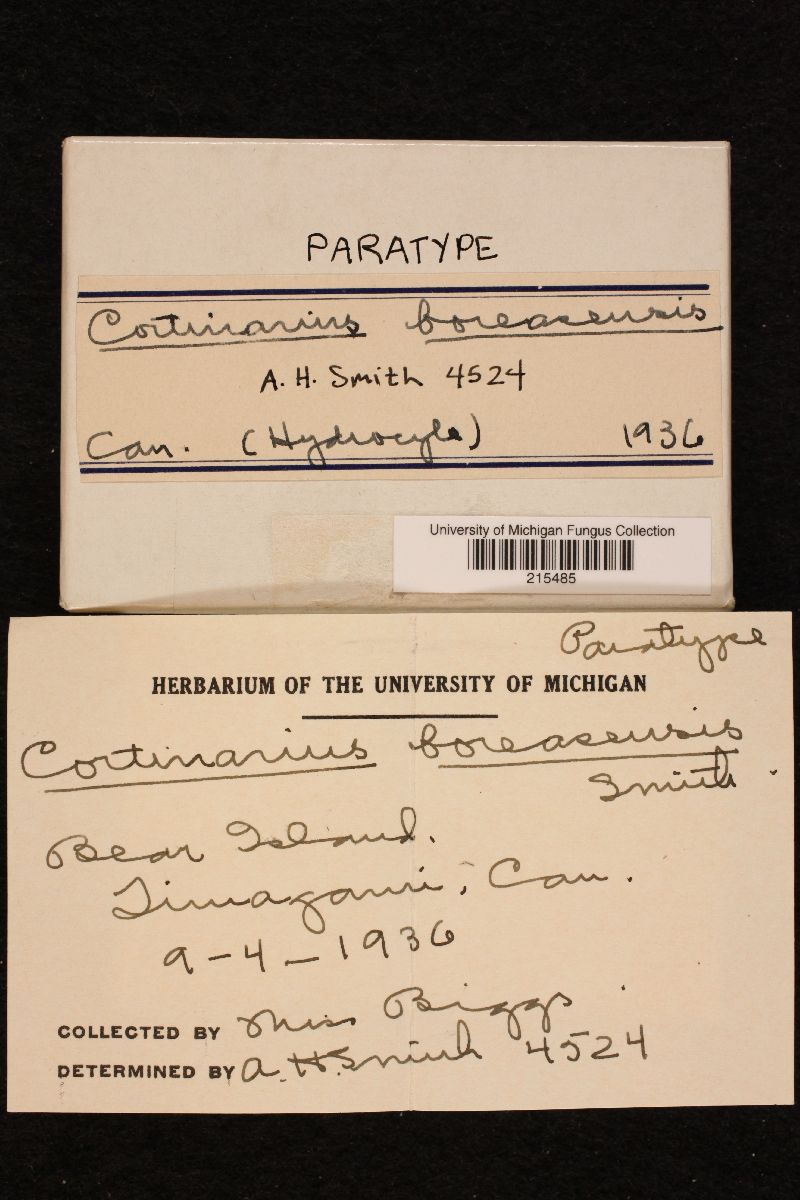 PARATYPE
Cortinarius boreasensis
A. H. Smith 4524
Can. (Hydrocybe) 1936
University of Michigan Fungus Collection
215485
Paratype
HERBARIUM OF THE UNIVERSITY OF MICHIGAN
Cortinarius boreasensis
Smith.
Bear Island.
Timagami, Can.
9-4-1936
COLLECTED BY Miss Biggs.
DETERMINED BY A. H. Smith 4524